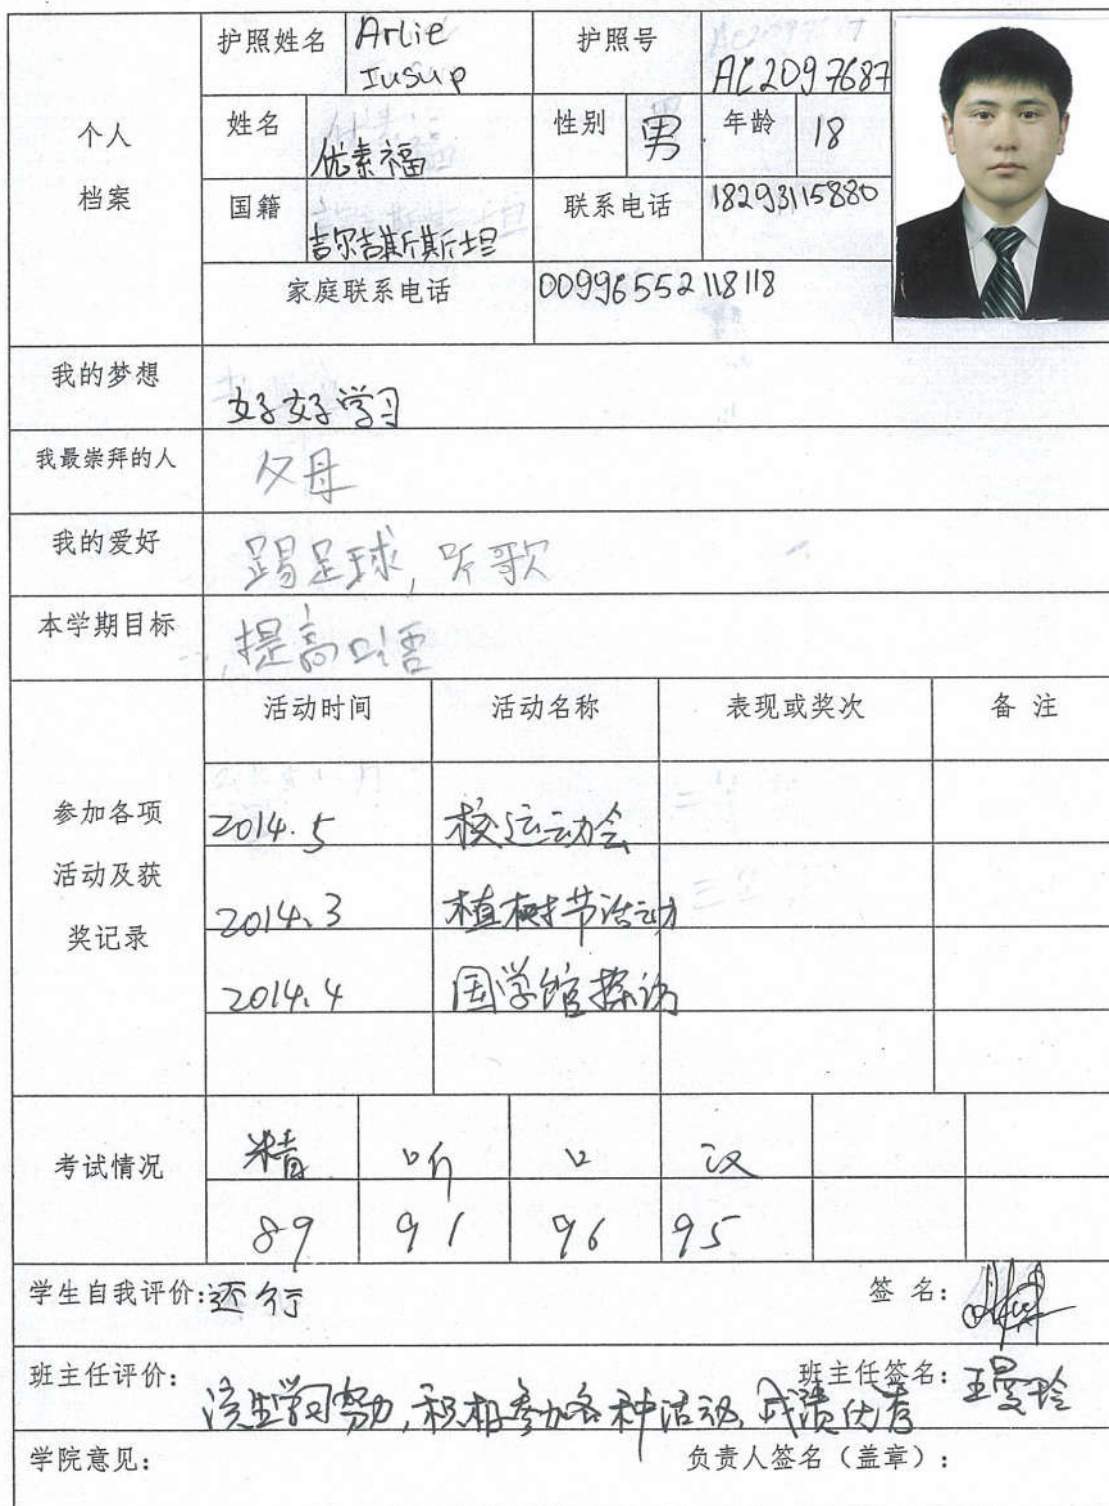 护照姓名 Arlie Iusup 护照号 AC2097687
个人档案
姓名 优素福 性别 男 年龄 18
国籍 吉尔吉斯斯坦 联系电话 18293115880
家庭联系电话 00996552118118
我的梦想 好好学习
我最崇拜的人 父母
我的爱好 踢足球, 听歌
本学期目标 提高口语
参加各项活动及获奖记录
活动时间 活动名称 表现或奖次 备 注
2014.5 校运动会
2014.3 植树节活动
2014.4 国学馆探访
考试情况
精 听 口 汉
89 91 96 95
学生自我评价:还行 签 名:
班主任评价: 班主任签名: 王曼玲
该生学习努力,积极参加各种活动,成绩优秀
学院意见: 负责人签名(盖章):